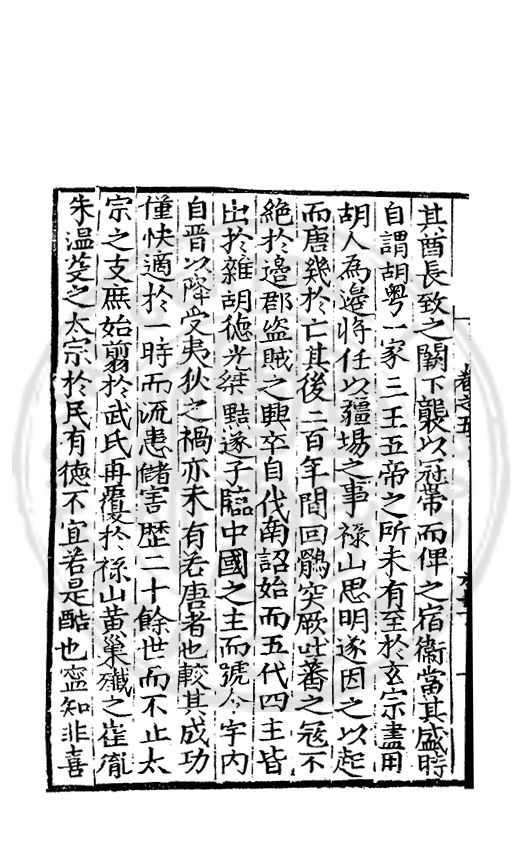 其酋長致之闕下襲以冠帶而俾之宿衞當其盛時
自謂胡粤一家三王五帝之所未有至於玄宗盡用
胡人為邊將任以疆場之事祿山思明遂因之以起
而唐幾於亡其後二百年間回鶻突厥吐蕃之寇不
絶於邊郡盗賊之興卒自代南詔始而五代四主皆
出於雜胡德光桀黠遂子臨中國之主而號令宇内
自晋以降受夷狄之禍亦未有若唐者也較其成功
僅快適於一時而流患儲害歴二十餘世而不止太
宗之支庶始翦於武氏再覆於祿山黄巢殲之崔胤
朱温芟之太宗於民有德不宜若是酷也寍知非喜
卷之五